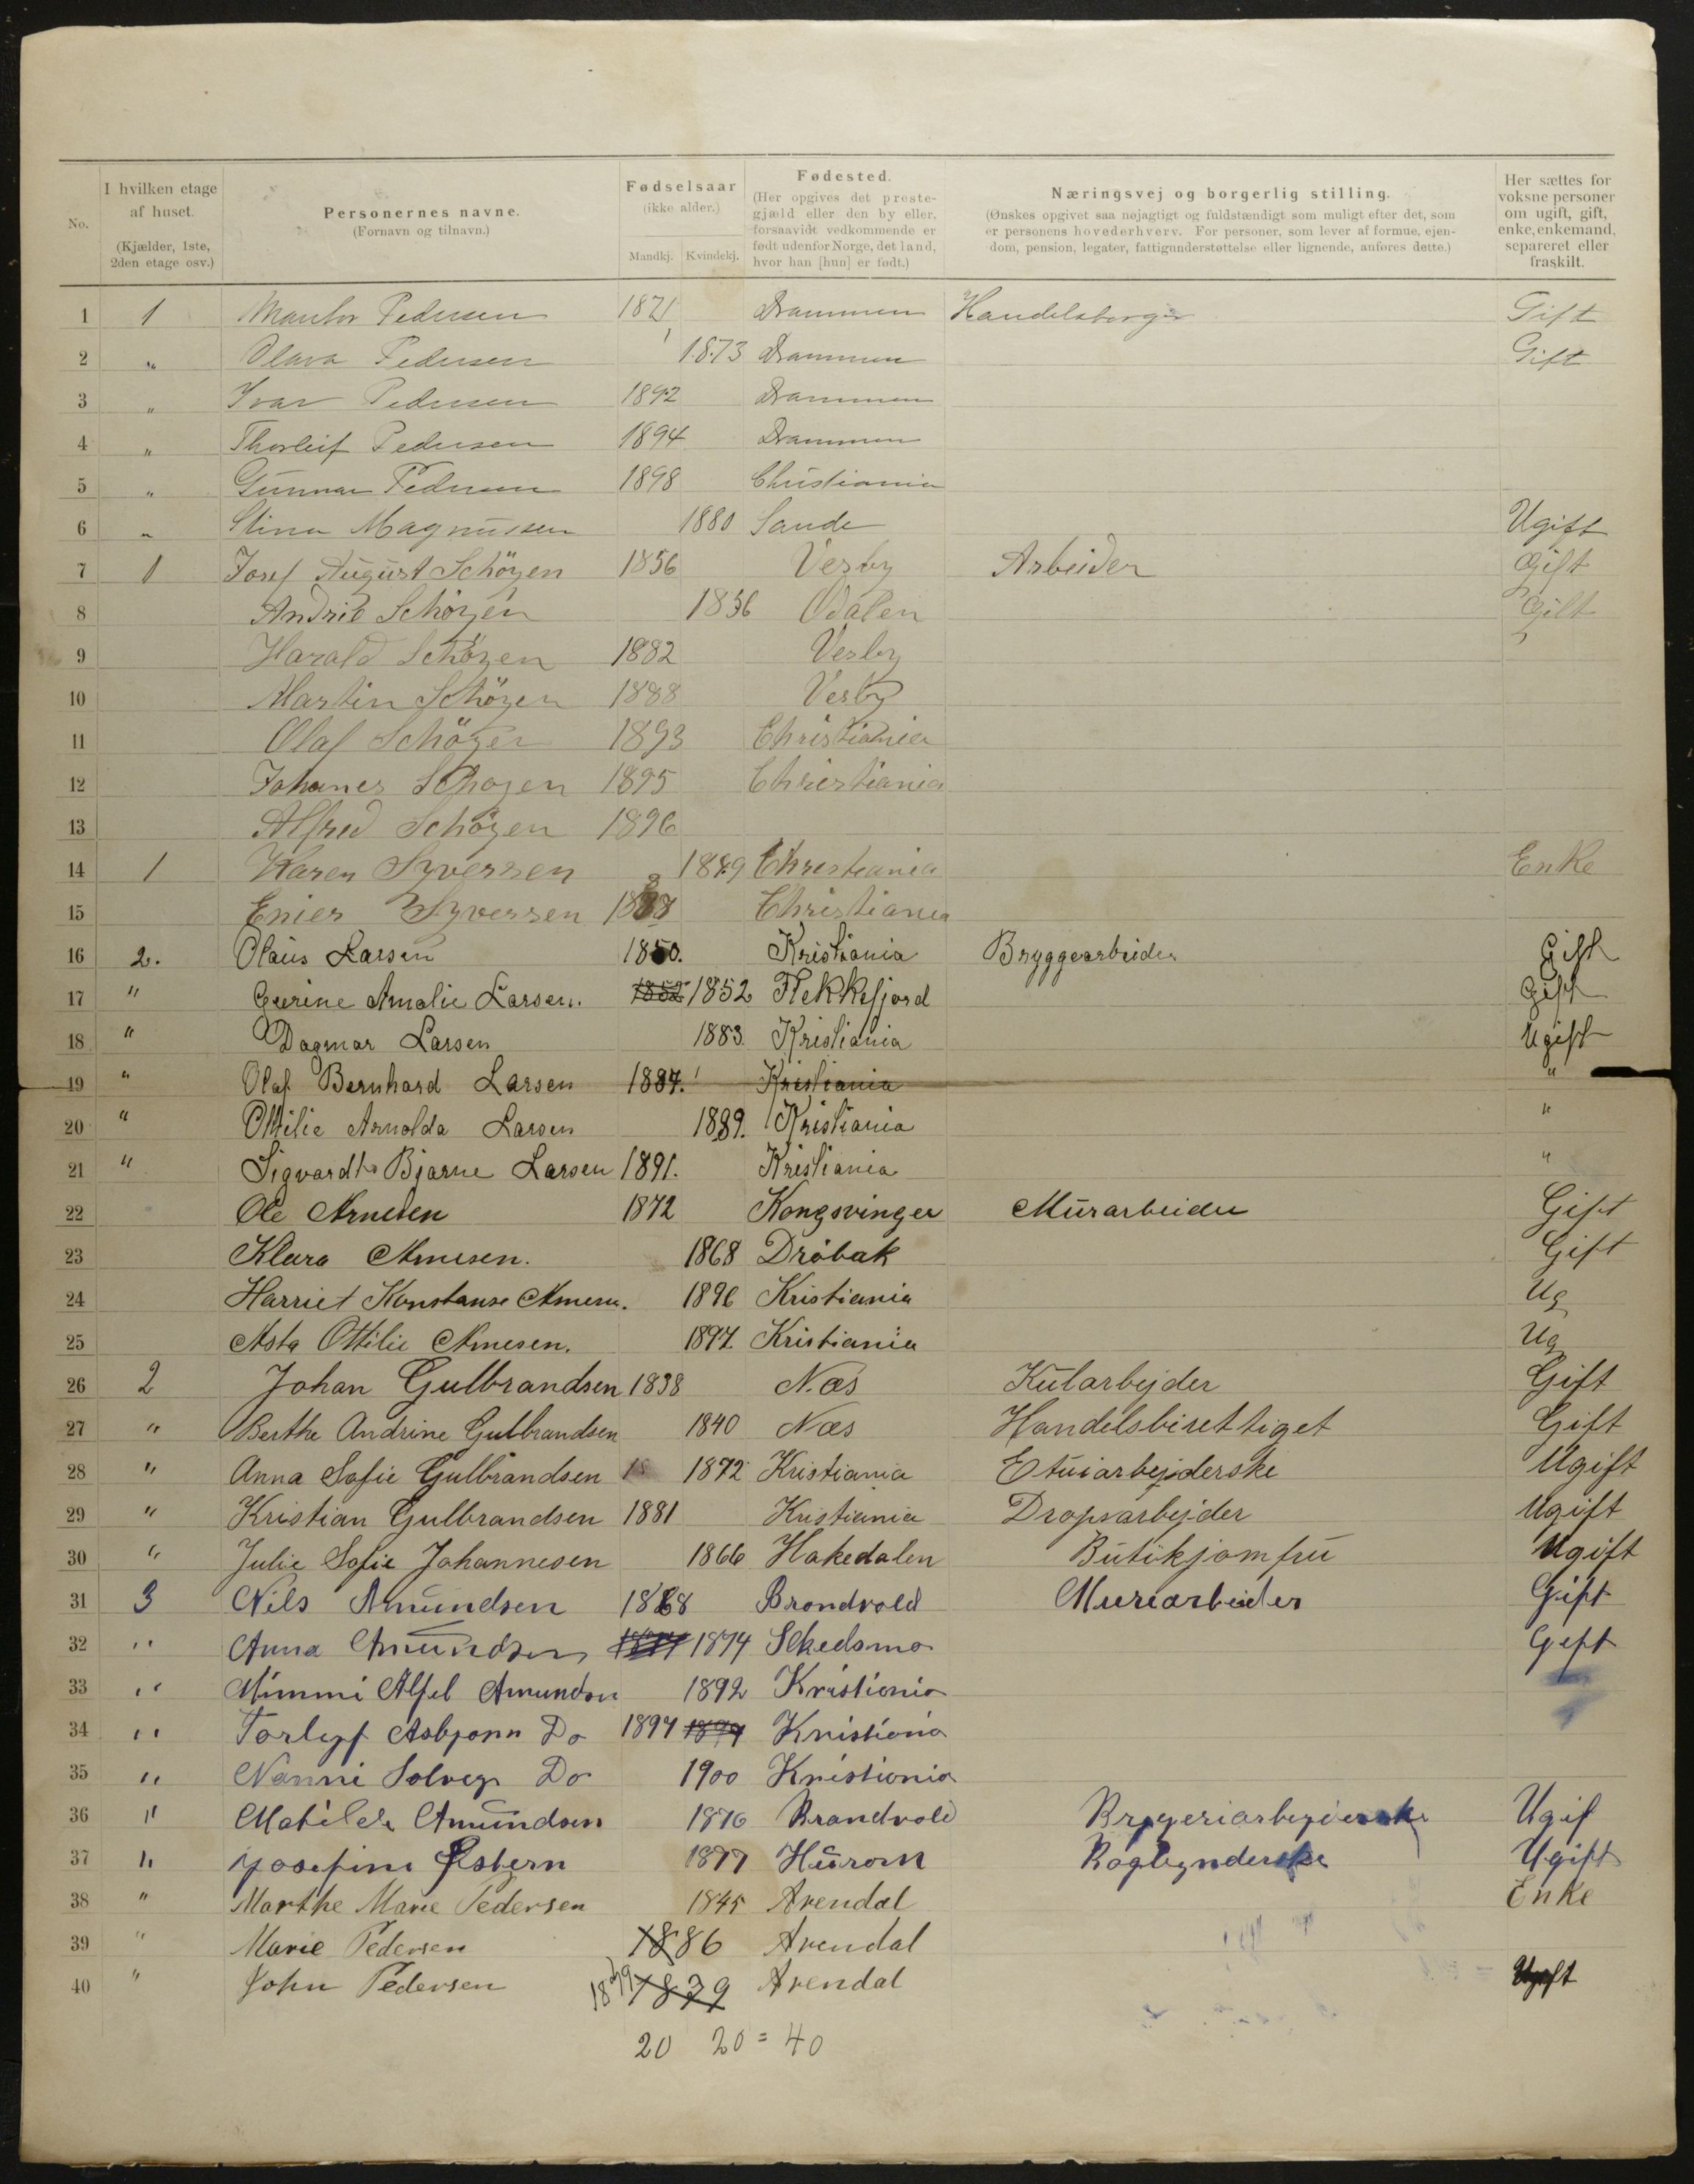 No.
I hvilken etage af huset. (Kjælder, 1ste, 2den etage osv.)
Personernes navne. (Fornavn og tilnavn.)
Fødselsaar (ikke alder.) Mandkj. Kvindekj.
Fødested. (Her opgives det prestegjæld eller den by eller, forsaavidt vedkommende er født udenfor Norge, det land, hvor han [hun] er født.)
Næringsvej og borgerlig stilling. (Ønskes opgivet saa nøjagtigt og fuldstændigt som muligt efter det, som er personens hovederhverv. For personer, som lever af formue, ejendom, pension, legater, fattigunderstøttelse eller lignende, anføres dette.)
Her sættes for voksne personer om ugift, gift, enke, enkemand, separeret eller fraskilt.
1 1 Pedersen 1871 Drammen Handelsborger Gift
2 " Olava Pedersen 1873 Drammen Gift
3 " Ivar Pedersen 1892 Drammen
4 " Thorleif Pedersen 1894 Drammen
5 " Gunnar Pedersen 1898 Christiania
6 " Stina Magnussen 1880 Sande Ugift
7 1 Josef August Schöyen 1856 Vesby Arbeider Gift
8 Andrie Schöyen 1836 Odalen Gift
9 Harald Schöyen 1882 Vesby
10 Martin Schöyen 1888 Vesby
11 Olaf Schöyen 1893 Christiania
12 Johanes Schoyen 1895 Christiania
13 Alfred Schöyen 1896
14 1 Karen Syversen 1849 Christiania Enke
15 Enier Syversen Christiania
16 2. Olaus Larsen 1850. Kristiania Bryggearbeider Gift
17 " Gurine Amalie Larsen. 1852 1852 Flekkefjord Gift
18 " Dagmar Larsen 1883. Kristiania Ugift
19 " Olaf Bernhard Larsen 1887. Kristiania "
20 " Ottilie Arnolda Larsen 1889. Kristiania "
21 " Sigvardt Bjarne Larsen 1891. Kristiania "
22 Ole Arnesen 1872 Kongsvinger Murarbeider Gift
23 Klara Arnesen. 1868 Dröbak Gift
24 Harriet Konstanse Arnesen. 1896 Kristiania Ug
25 Asta Ottilie Arnesen. 1897. Kristiania Ug
26 2 Johan Gulbrandsen 1838 Næs Kularbejder Gift
27 " Berthe Andrine Gulbrandsen 1840 Næs Handelsbirettiget Gift
28 " Anna Sofie Gulbrandsen 18 1872 Kristiania Etuiarbejderske Ugift
29 " Kristian Gulbrandsen 1881 Kristiania Dropsarbejder Ugift
30 " Julie Sofie Johannesen 1866 Hakedalen Butikjomfru Ugift
31 3 Nils Amundsen 1868 Brondvold Murearbeider Gift
32 " Anna Amundsen 1874 Skedsmo Gift
33 " Mimmi Alfel Amundsn 1892 Kristiania
34 " Torleyf Asbjonn Do 1894 1894 Kristiania
35 " Nanni Solveg Do 1900 Kristiania
36 " Matilde Amundsen 1876 Brandvold Brygeriarbejderske Ugif
37 " Josefine Østern 1877 Hurom Bogbynderske Ugift
38 " Marthe Marie Pedersen 1845 Arendal Enke
39 " Marie Pedersen 1886 Arendal
40 " John Pedersen 1879 1879 Arendal Ugift
20 20 = 40